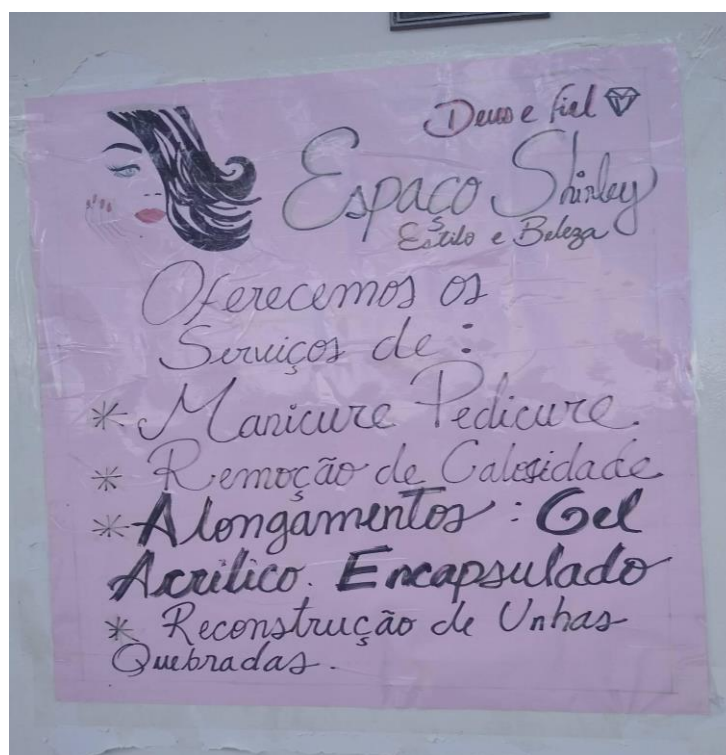 Deus e fiel
Espaço Shirley
Estilo e Beleza
Oferecemos os
Serviços de :
* Manicure Pedicure.
* Remoção de Calosidade
* Alongamentos : Gel
Acrilico. Encapsulado
* Reconstrução de Unhas
Quebradas.